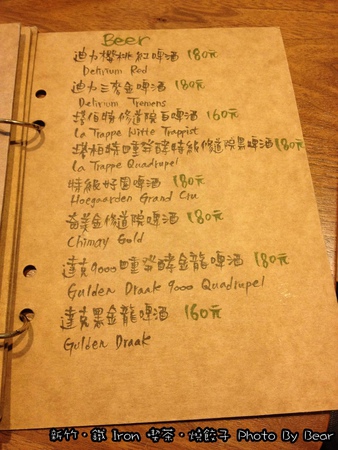 Beer
迪力櫻桃紅啤酒 180元
Delirium Red
迪力三麥金啤酒 180元
Delirium Tremens
塔伯特修道院白啤酒 160元
La Trappe Witte Trappist
塔柏特四重發酵特級修道院黑啤酒 180元
La Trappe Quadrupel
特級好国啤酒 180元
Hoegaarden Grand Cru
奇美金修道院啤酒 180元
Chimay Gold
達克9000四重發酵金龍啤酒 180元
Gulden Draak 9000 Quadrupel
達克黑金龍啤酒 160元
Gulden Draak
新竹・鐵 Iron 喫茶・燒餃子 Photo By Bear